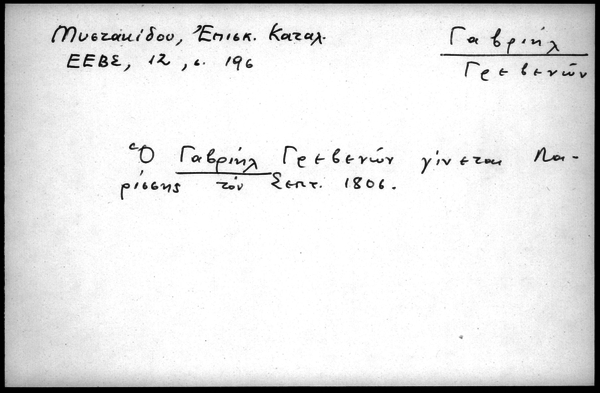 Μυστακίδου, Ἐπισκ. Καταλ.
ΕΕΒΣ, 12, σ. 196
Γαβριήλ
Γρεβενῶν
Ὁ Γαβριήλ Γρεβενῶν γίνεται Λα-
ρίσσης τόν Σεπτ. 1806.